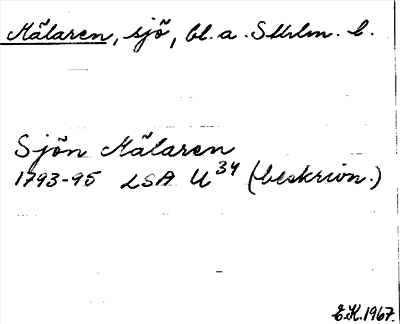 Mälaren, sjö, bl.a. Sthlm. l.
Sjön Mälaren
1793-95 LSA U³⁴ (beskrivn.)
E.K. 1967.